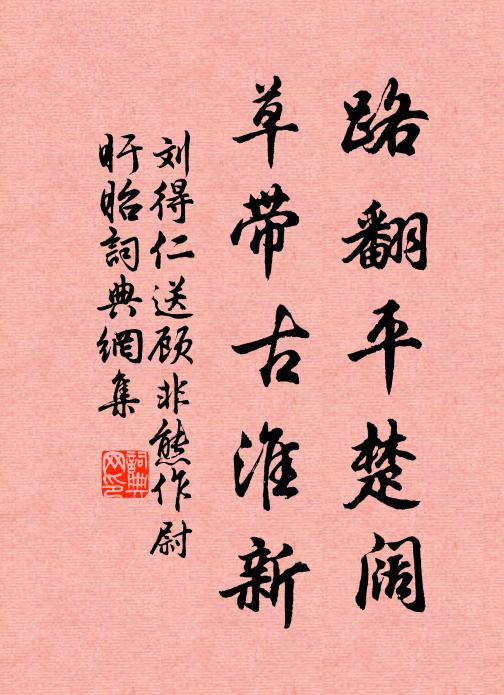 路翻平楚阔
草带古淮新
刘得仁送顾非熊作尉
盱眙詞典網集
詞典
网印